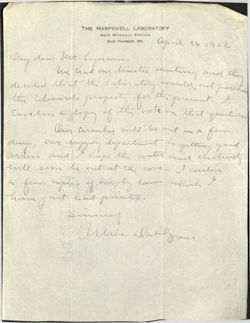 THE HARPSWELL LABORATORY
WEIR MITCHELL STATION
BAR HARBOR, ME
April 24, 1922
My dear Mr.
We had our trustee meeting and they
decided that the laboratory would not purchase
the Edwards property for the present. I
enclose a copy of the vote on that question.
Our circular will be out in a few
days, our supply department is getting good
orders and I hope the water and electricity
will soon be out at the cove. I enclose
a few copies of my by laws which I
have just had printed.
Sincerely
Ulric Dahlgren